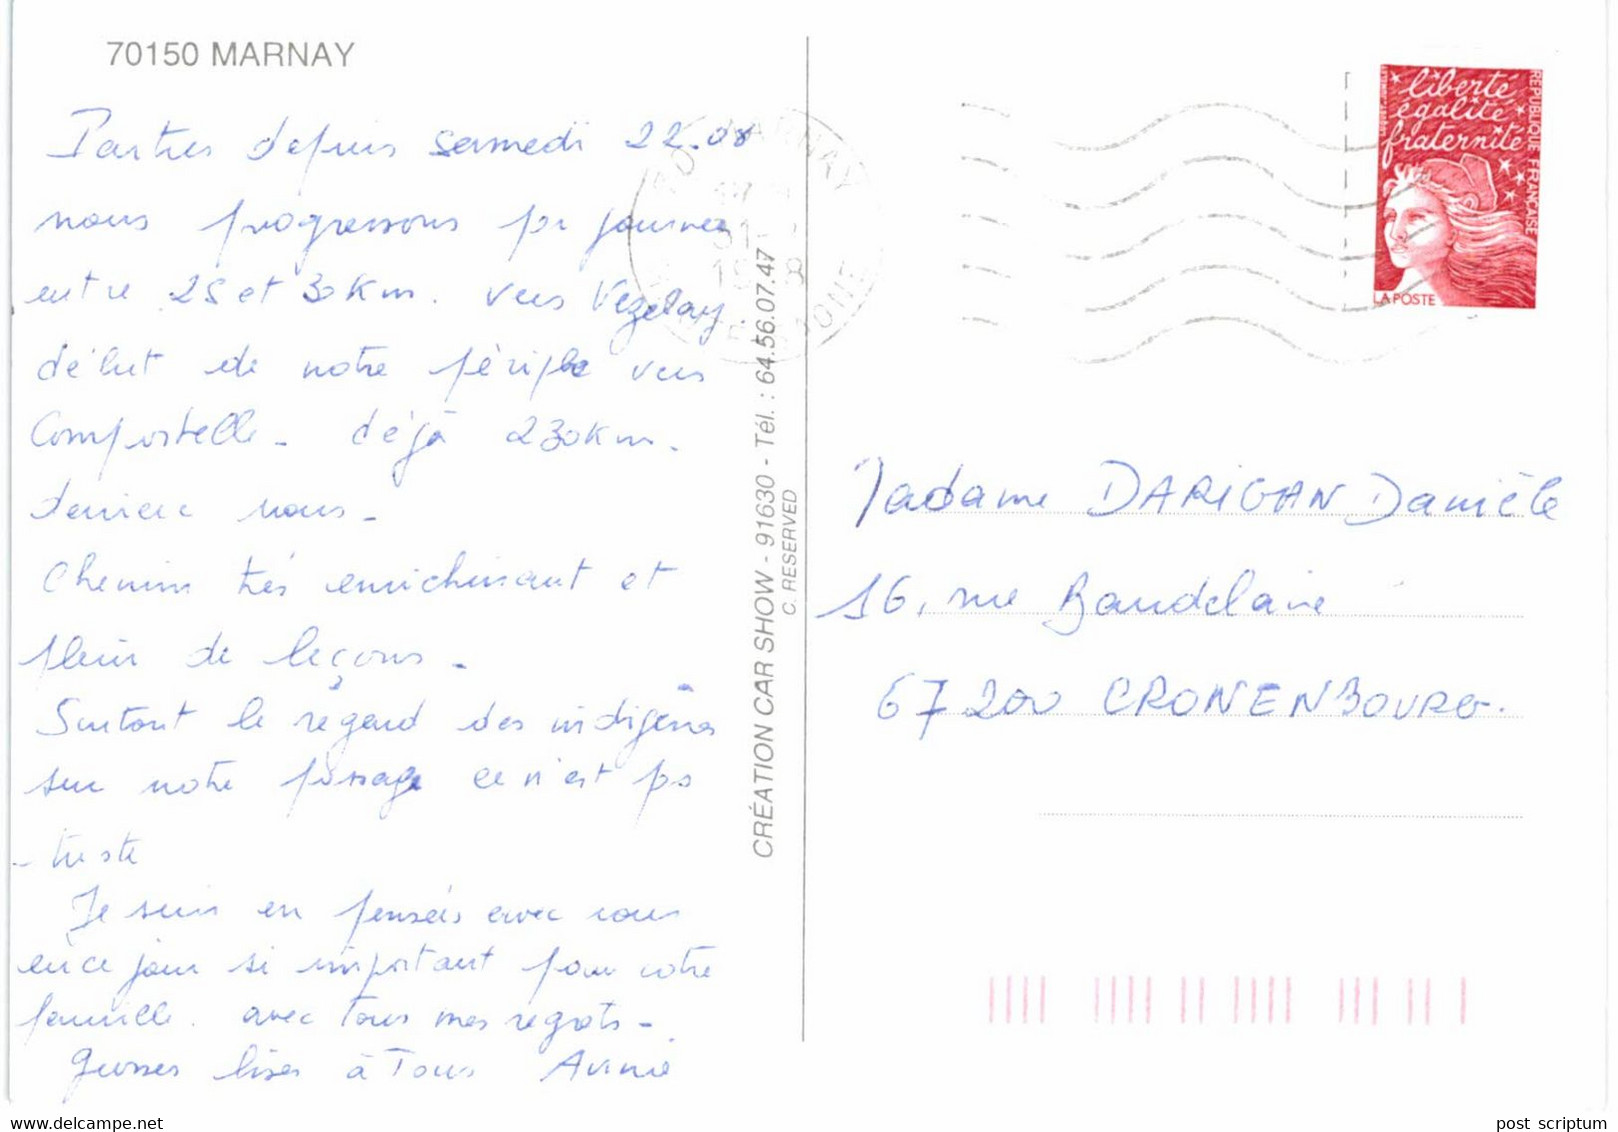 70150 MARNAY
Parties depuis samedi 22.08
nous progressons par journée
entre 25 et 30 Km. vers Vezelay.
début de notre périple vers
Compostelle - déjà 230 Km.
derrière nous -
Chemin très enrichissant et
plein de leçons -
Surtout le regard des indigènes
sur notre passage ce n'est pas
triste
Je suis en pensées avec vous
en ce jour si important pour votre
famille. avec Tous mes regrets -
Grosses bises à Tous Annie
CRÉATION CAR SHOW - 91630 - Tél. : 64.56.07.47
C. RESERVED
MARNAY
liberté
égalité
fraternité
RÉPUBLIQUE FRANÇAISE
LA POSTE
Madame DARIGAN Danièle
16, rue Baudelaire
67200 CRONENBOURG.
post scriptum